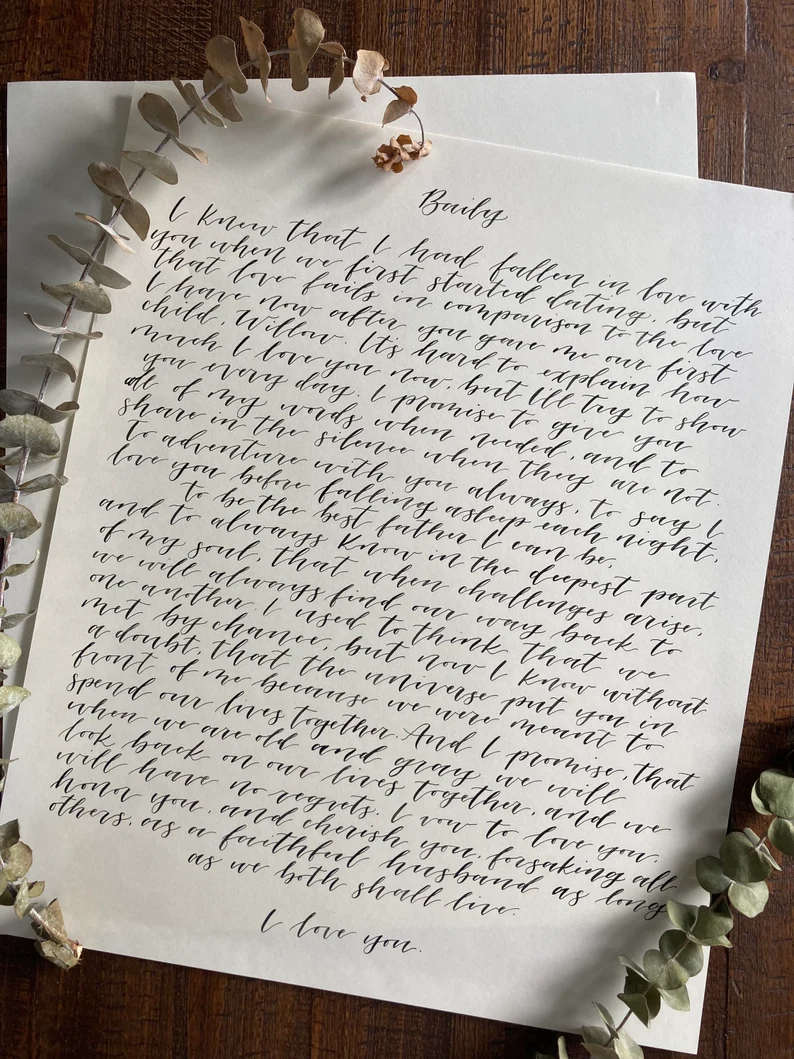 Baily
I knew that I had fallen in love with
you when we first started dating, but
that love fails in comparison to the love
I have now after you gave me our first
child, Willow. It's hard to explain how
much I love you now, but I'll try to show
you every day. I promise to give you
all of my words when needed, and to
share in the silence when they are not.
To adventure with you always, to say I
love you before falling asleep each night,
to be the best father I can be,
and to always know in the deepest part
of my soul, that when challenges arise,
we will always find our way back to
one another. I used to think that we
met by chance, but now I know without
a doubt, that the universe put you in
front of me because we were meant to
spend our lives together. And I promise, that
when we are old and gray we will
look back on our lives together, and we
will have no regrets. I vow to love you,
honor you, and cherish you, forsaking all
others, as a faithful husband as long
as we both shall live.
I love you.